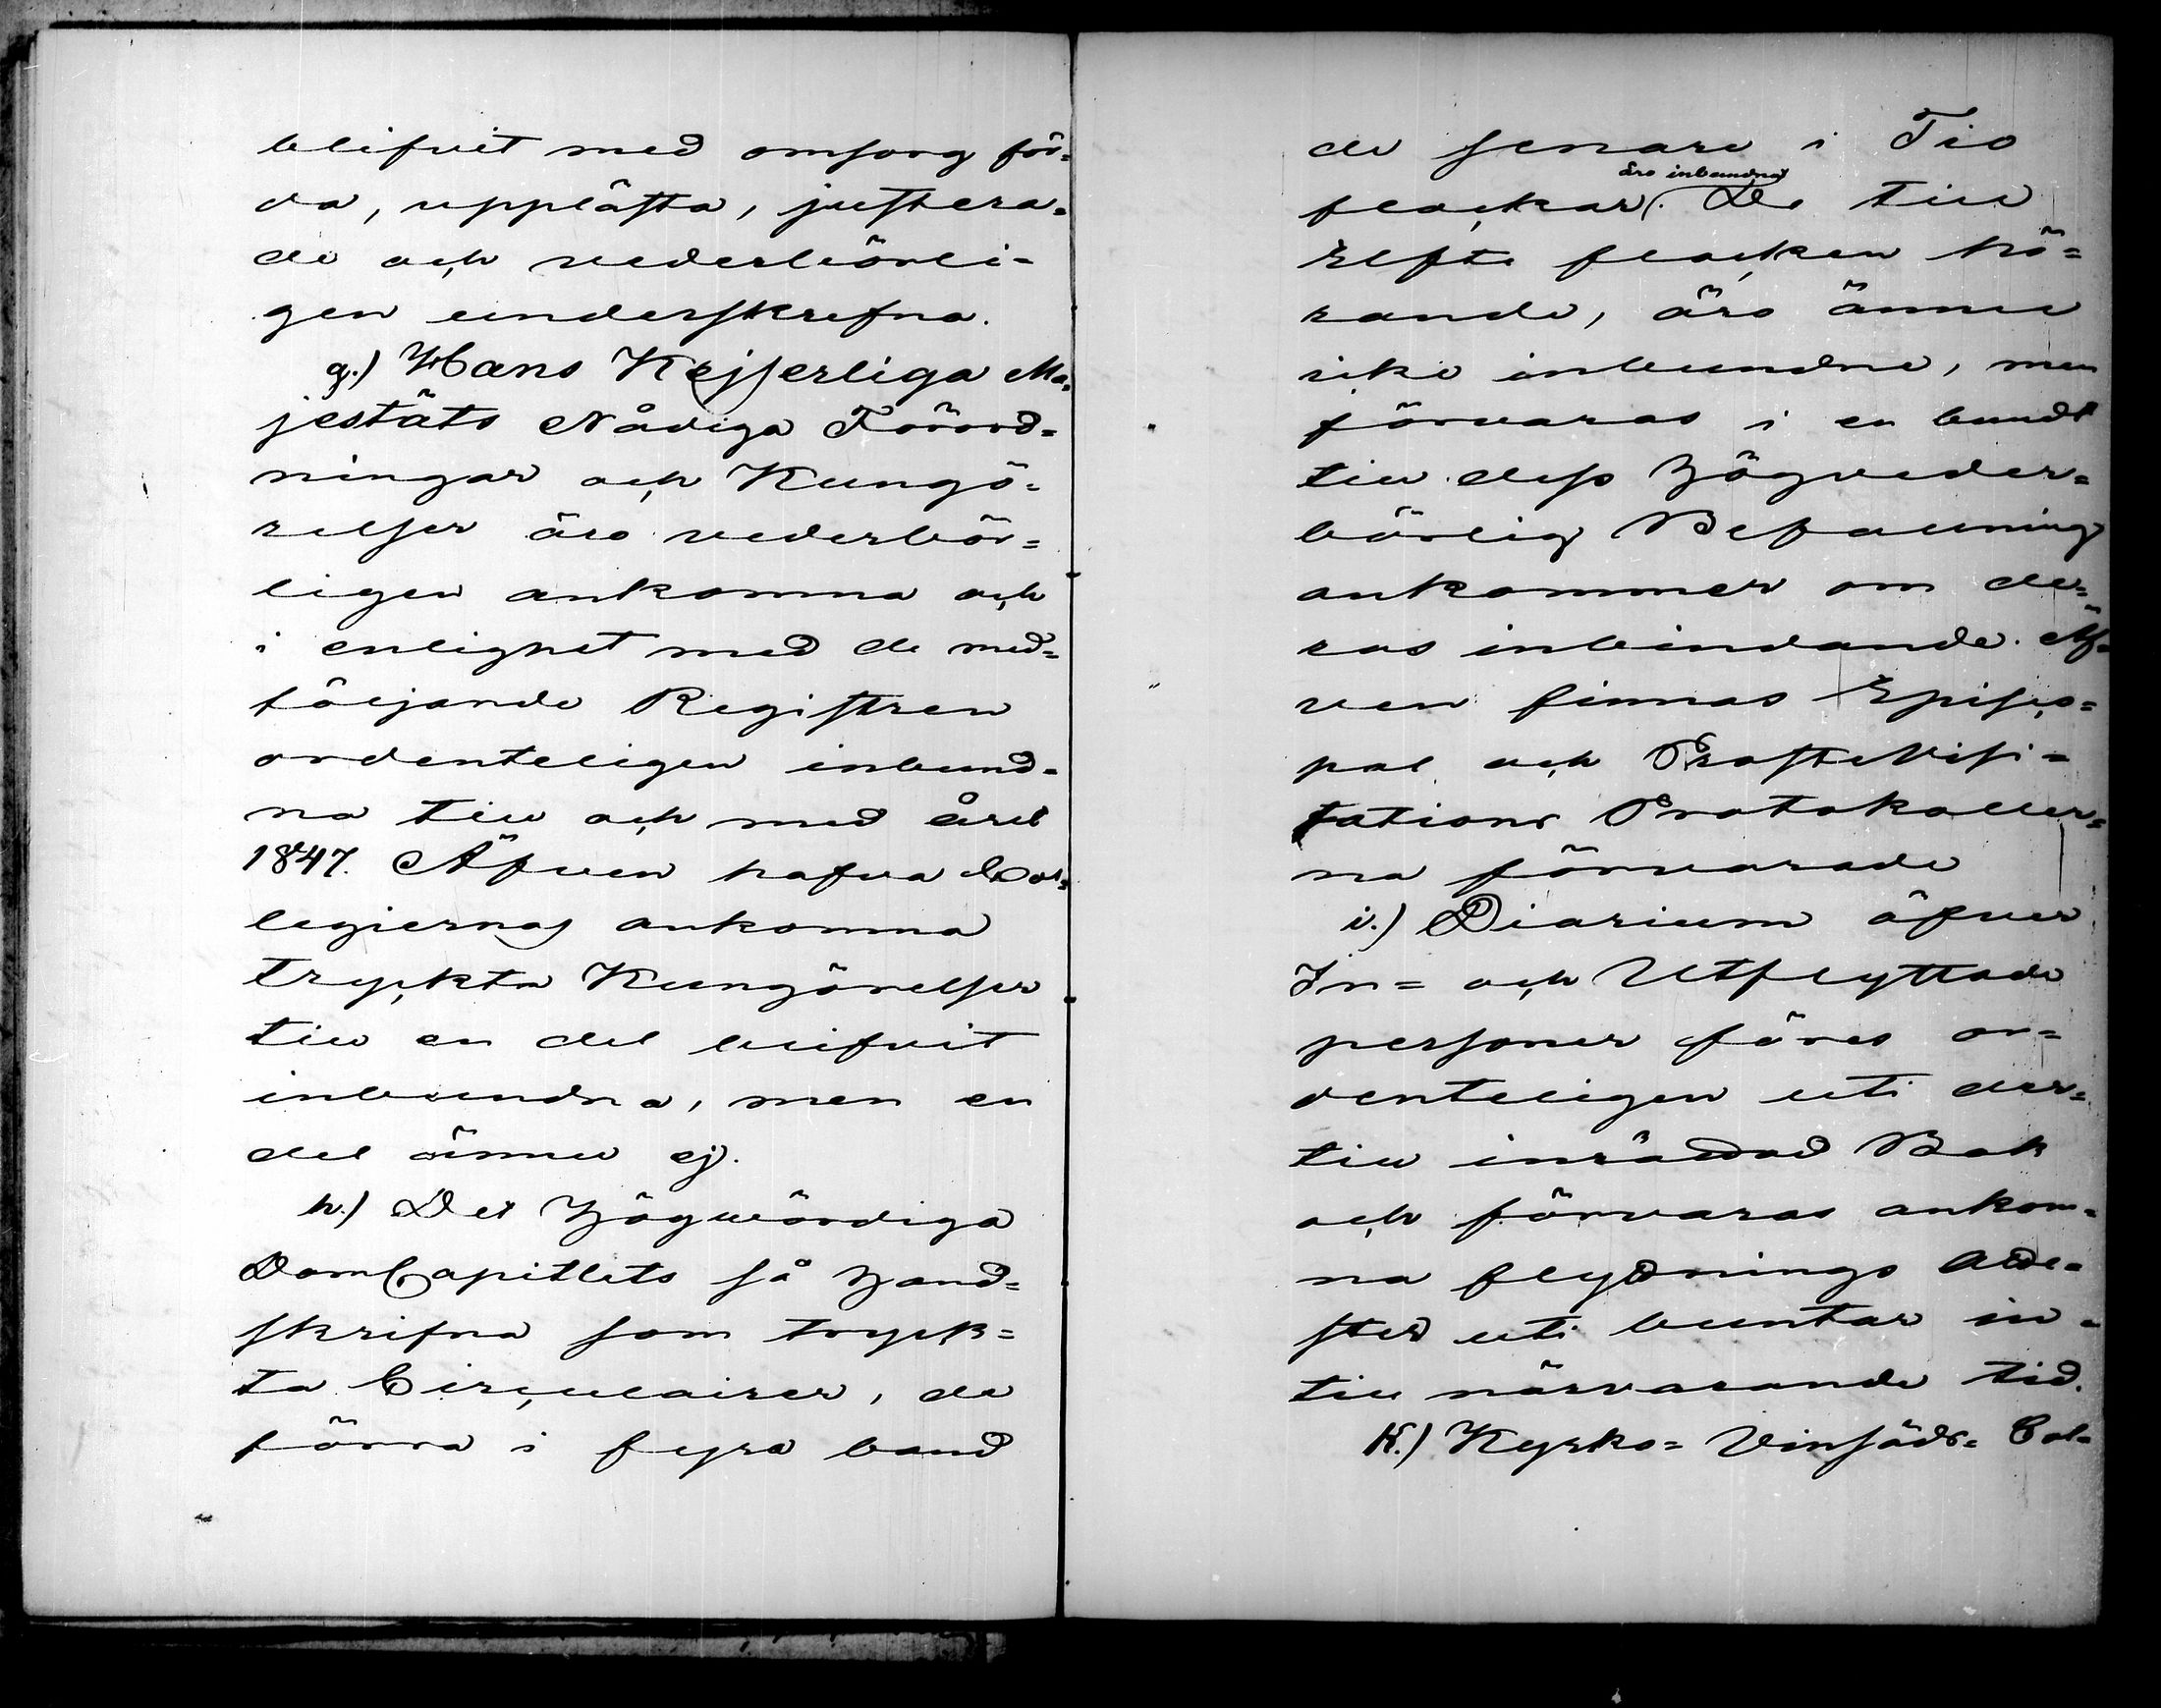 blifvit med omsorg för=
da, upplästa, justera=
de och vederbörli=
gen underskrefna.
g.) Hans Kejserliga Ma=
jestäts Nådiga Förord=
ningar och Kungö=
relser äro vederbör=
ligen ankomna och
i enlighet med de med=
följande Registren
ordenteligen inbund=
na till och med året
1847. Äfven hafva Col=
legiernas ankomna
tryckta Kungörelser
till en del blifvit
inbundna, men en
del ännu ej.
h.) Det Högwördiga
DomCapitlets så Hand=
skrifna som tryck=
ta Circulairer, de
förra i fyra band
de senare i Tio
flockar äro inbundna. De till
Elfte flocken hö=
rande, äro ännu
icke inbundne, men
förvaras i en bundt
till dess Högveder=
börlig Befallning
ankommer om de=
ras inbindande. Äf=
ven finnas Episco=
pal och ProsteVisi=
tations Protokoller=
na förvarade
i.) Diarium öfver
In= och Utflyttade
personer föres or=
denteligen uti der=
till inrättad Bok
och förvaras ankom=
na flyttnings Atte=
ster uti buntar in=
till närvarande tid.
K.) Kyrko= Vinsäds= Col=